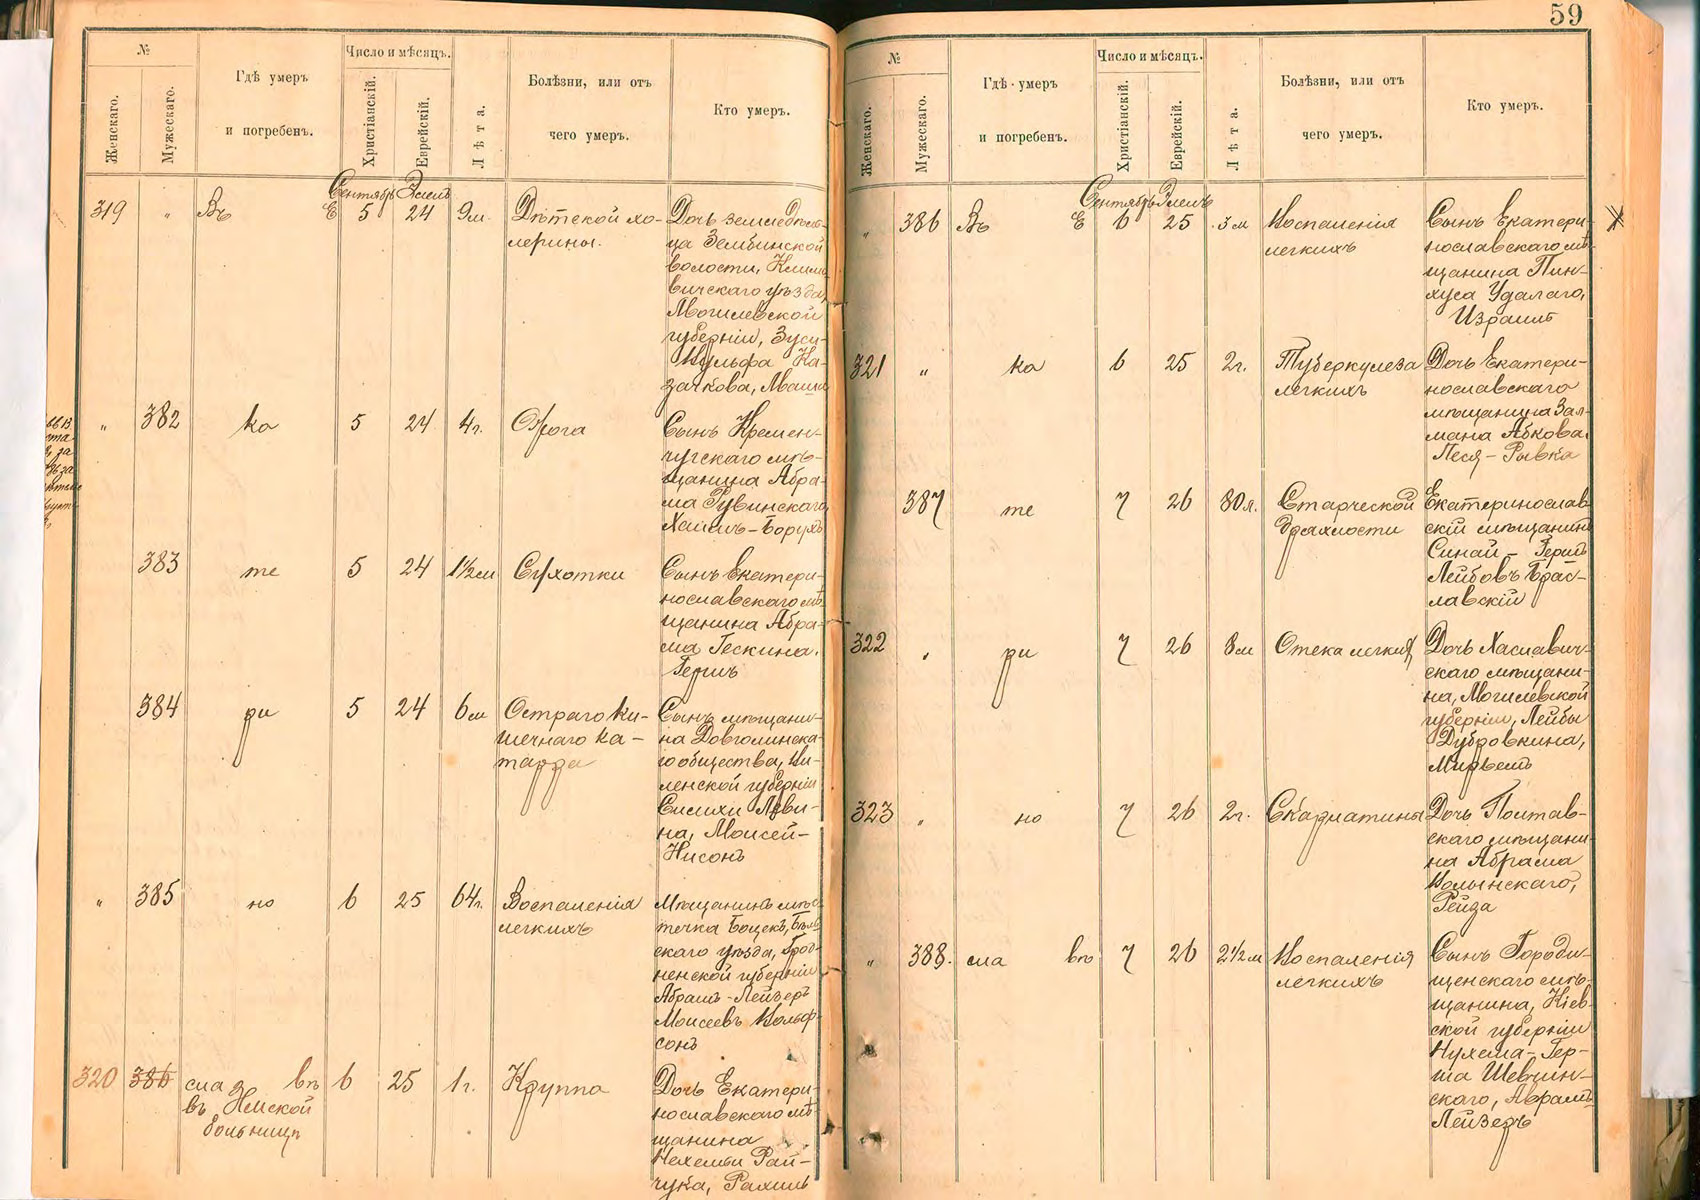 59
№
Женскаго.
Мужескаго.
Гдѣ умеръ
и погребенъ.
Число и мѣсяцъ.
Христіанскій.
Еврейскій.
Лѣта.
Болѣзни, или отъ
чего умеръ.
Кто умеръ.
Сентябрь Элелъ
319 " Въ Е 5 24 9м. Дѣтской хо-
лерины.
Дочь земледѣль-
ца Зембинской
волости, Климо-
вичскаго уѣзда,
Могилевской
губерніи, Зуси-
Вульфа Ка-
зачкова, Маша
" 382 ка 5 24 4г. Крупа
Сынъ Кремен-
чугскаго мѣ-
щанина Абра-
ма Рувинскаго,
Хаимъ-Борухъ
383 те 5 24 1½м Сухотки
Сынъ Екатери-
нославскаго мѣ-
щанина Абра-
ма Гескина,
Гершъ
384 ри 5 24 6м Остраго ки-
шечнаго ка-
тарра
Сынъ мѣщани-
на Довголинска-
го общества, Ви-
ленской губерніи
Леви-
на, Моисей-
Нисонъ
" 385 но 6 25 64г. Воспаленія
легкихъ
Мѣщанинъ мѣс-
течка Боцекъ, Бѣль-
скаго уѣзда, Грод-
ненской губерніи
Абрамъ-Лейзеръ
Моисеевъ Вольф-
сонъ
320 386 сла въ 6 25 1г. Круппа
въ Земской
больницѣ
Дочь Екатери-
нославскаго мѣ-
щанина
Нехемьи Рай-
чука, Рахиль
№
Женскаго.
Мужескаго.
Гдѣ умеръ
и погребенъ.
Число и мѣсяцъ.
Христіанскій.
Еврейскій.
Лѣта.
Болѣзни, или отъ
чего умеръ.
Кто умеръ.
Сентябрь Элелъ
" 386 Въ Е 6 25 3м Воспаленія
легкихъ
Сынъ Екатери-
нославскаго мѣ-
щанина Пин-
хуса Удалаго,
Израиль
321 " ка 6 25 2г. Туберкулеза
легкихъ
Дочь Екатери-
нославскаго
мѣщанина Зал-
мана Абкова,
Песя-Рывка
387 те 7 26 80л. Старческой
дряхлости
Екатеринослав-
скій мѣщанинъ
Синай-Гершъ
Лейбовъ Брас-
лавскій
322 " ри 7 26 8м Отека легкихъ
Дочь Хаславич-
скаго мѣщани-
на, Могилевской
губерніи, Лейбы
Дубровкина,
Мирьемъ
323 " но 7 26 2г. Скарлатины
Дочь Полтав-
скаго мѣщани-
на Абрама
Волынскаго,
Рейза
" 388. сла въ 7 26 2½м Воспаленія
легкихъ
Сынъ Городи-
щенскаго мѣ-
щанина, Кіев-
ской губерніи
Нухема-Гер-
ша Шевчин-
скаго, Абрамъ-
Лейзеръ